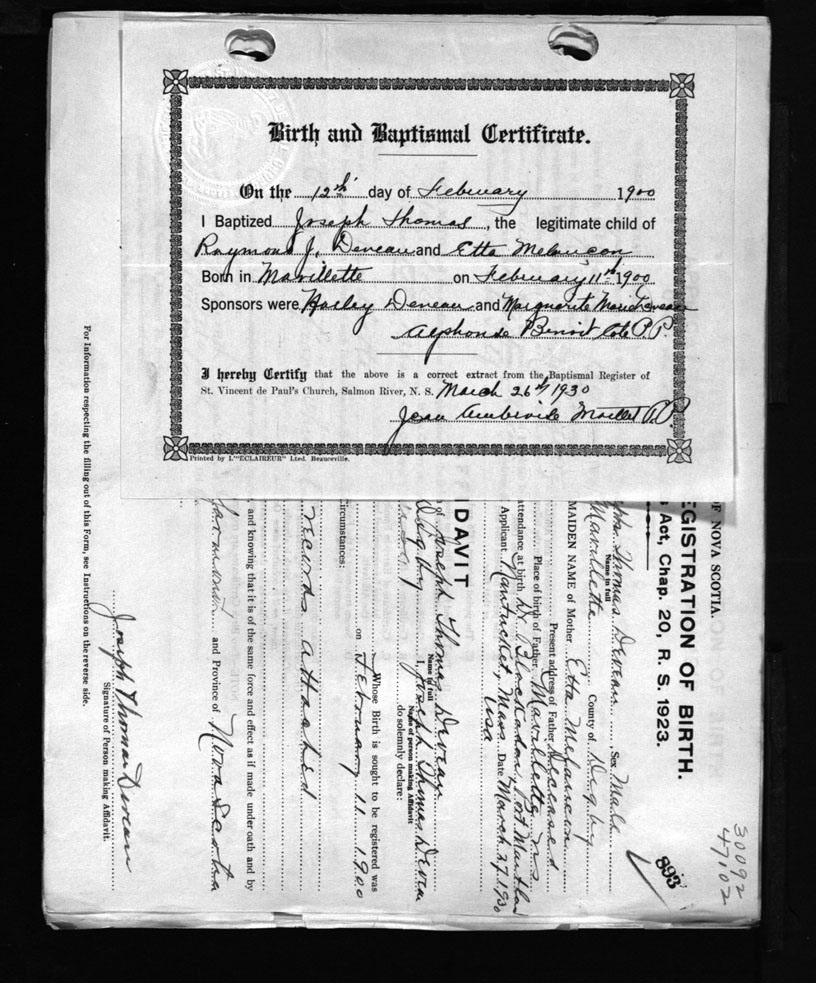 Birth and Baptismal Certificate.
On the 12th day of February 1900
I Baptized Joseph Thomas, the legitimate child of
Raymond J. Deveau and Etta Melancon
Born in Mavillette on February 11th 1900
Sponsors were Harley Deveau and Marguerite Marie Deveau
Alphonse Benoit Cote P.P.
I hereby Certify that the above is a correct extract from the Baptismal Register of
St. Vincent de Paul's Church, Salmon River, N. S. March 26th, 1930
Jean Ambroise Maillet P.P.
Printed by L'"ÉCLAIREUR" Lted. Beauceville.
30092
47,102
893
OF NOVA SCOTIA.
EGISTRATION OF BIRTH.
Act, Chap. 20, R. S. 1923.
Thomas Deveau Sex Male
Name in full
Mavillette County of Digby
MAIDEN NAME of Mother Etta Melancon
Present address of Father Deceased
Place of birth of Father Mavillette N S
attendance at birth Dr. Blackadar, Port Maitland
Applicant Nantucket, Mass. Date March 27 1930
USA
IDAVIT
of Joseph Thomas Deveau
Name in full
Digby I, Joseph Thomas Deveau
Name of person making Affidavit
do solemnly declare:
Whose Birth is sought to be registered was
on February 11 1900
Circumstances:
records attached
and knowing that it is of the same force and effect as if made under oath and by
Yarmouth and Province of Nova Scotia
Joseph Thomas Deveau
Signature of Person making Affidavit.
For Information respecting the filling out of this Form, see Instructions on the reverse side.